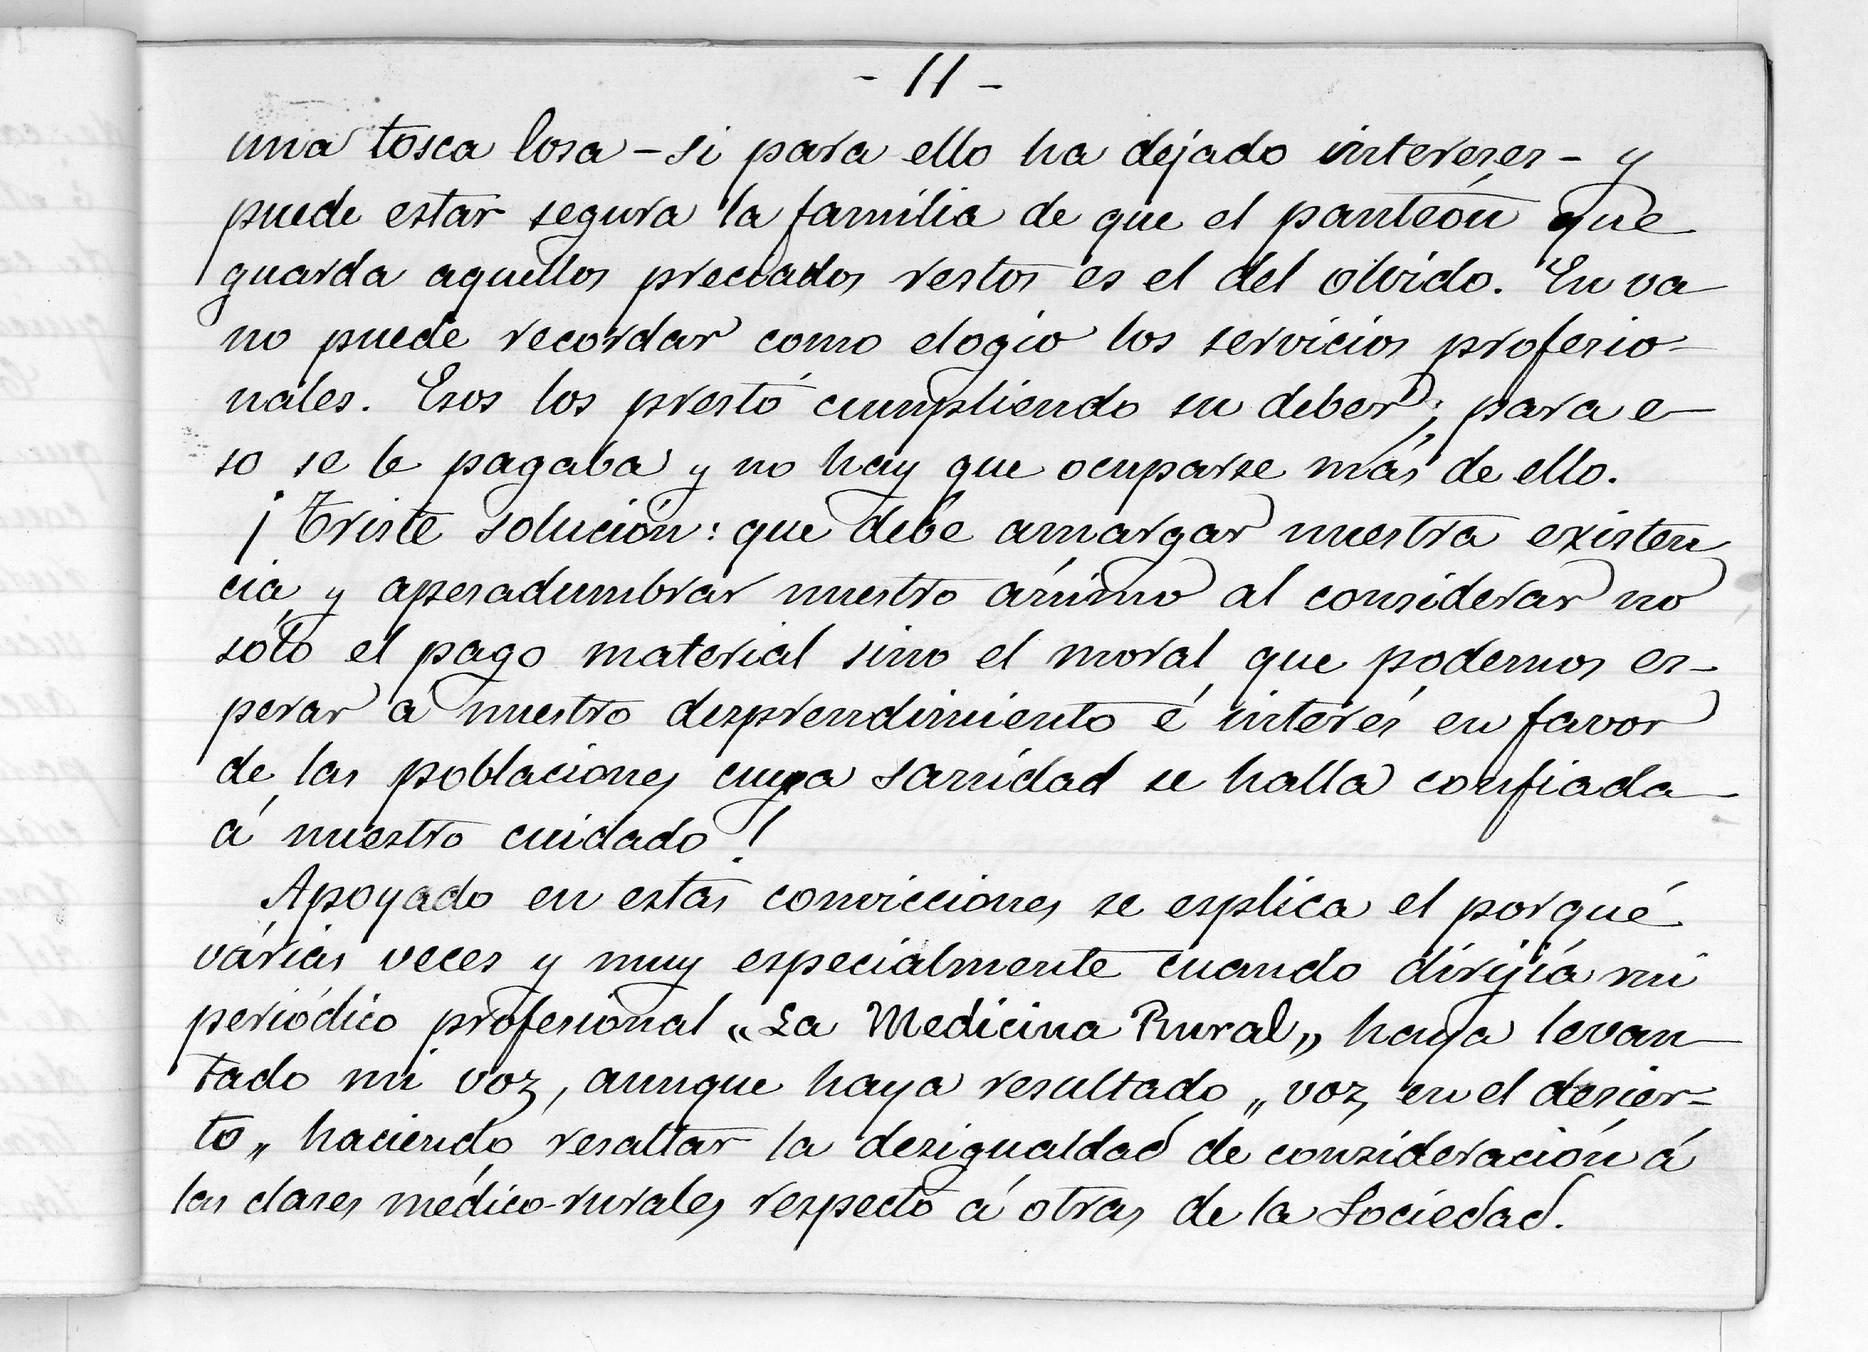 - 11 -
una tosca losa - si para ello ha dejado intereses - y
puede estar segura la familia de que el panteón que
guarda aquellos preciados restos es el del olvido. En va
no puede recordar como elogio los servicios profesio-
nales. Esos los prestó cumpliendo su deber; para e-
so se le pagaba y no hay que ocuparse más de ello.
¡Triste solución: que debe amargar nuestra existen
cia y apesadumbrar nuestro ánimo al considerar no
sólo el pago material sino el moral que podemos es-
perar á nuestro desprendimiento é interés en favor
de las poblaciones cuya sanidad se halla confiada
á nuestro cuidado!
Apoyado en estas convicciones se esplica el porqué
várias veces y muy especialmente cuando dirijía mi
periódico profesional „La Medicina Rural„ haya levan
tado mi voz, aunque haya resultado „voz en el desier-
to„ haciendo resaltar la desigualdad de consideración á
las clases médico-rurales respecto á otras de la Sociedad.